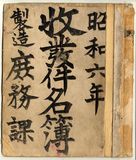 昭和六年
收發件名簿
製造庶務課